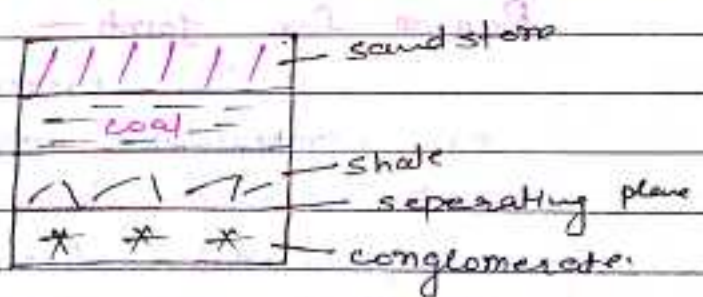 sandstone
coal
shale
seperating plane
conglomerate.